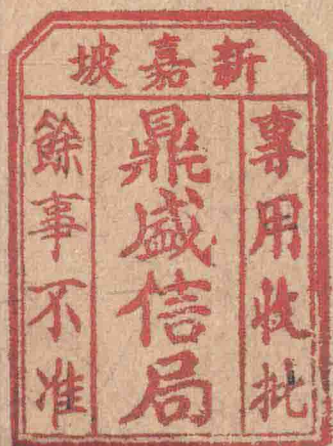 新嘉坡
專用收批
鼎盛信局
餘事不准